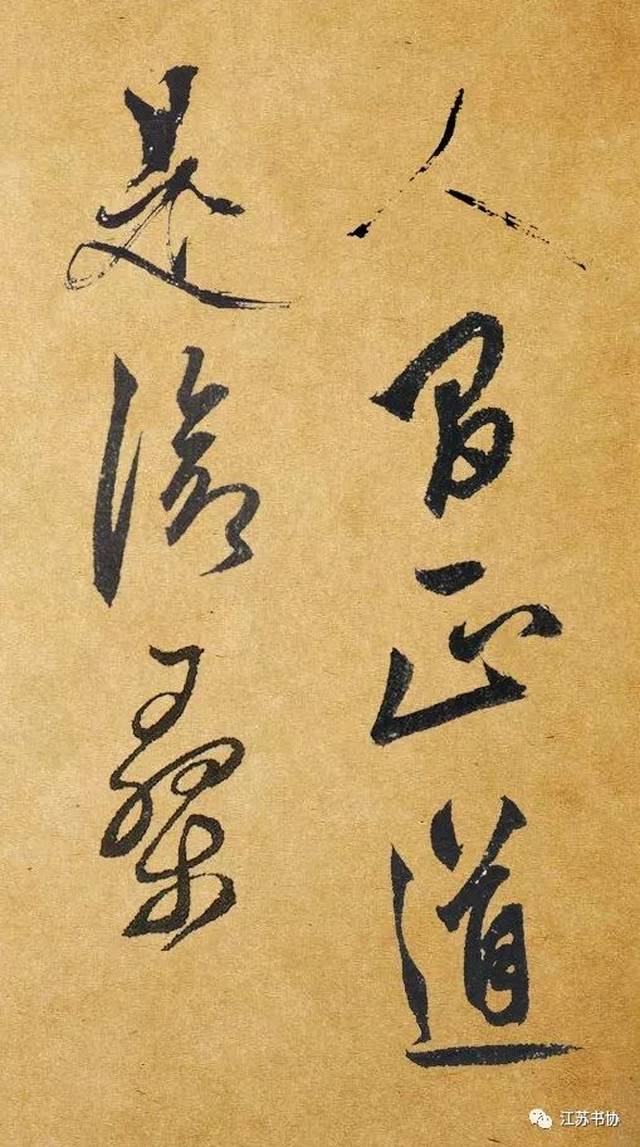 人間正道
是滄桑
江苏书协